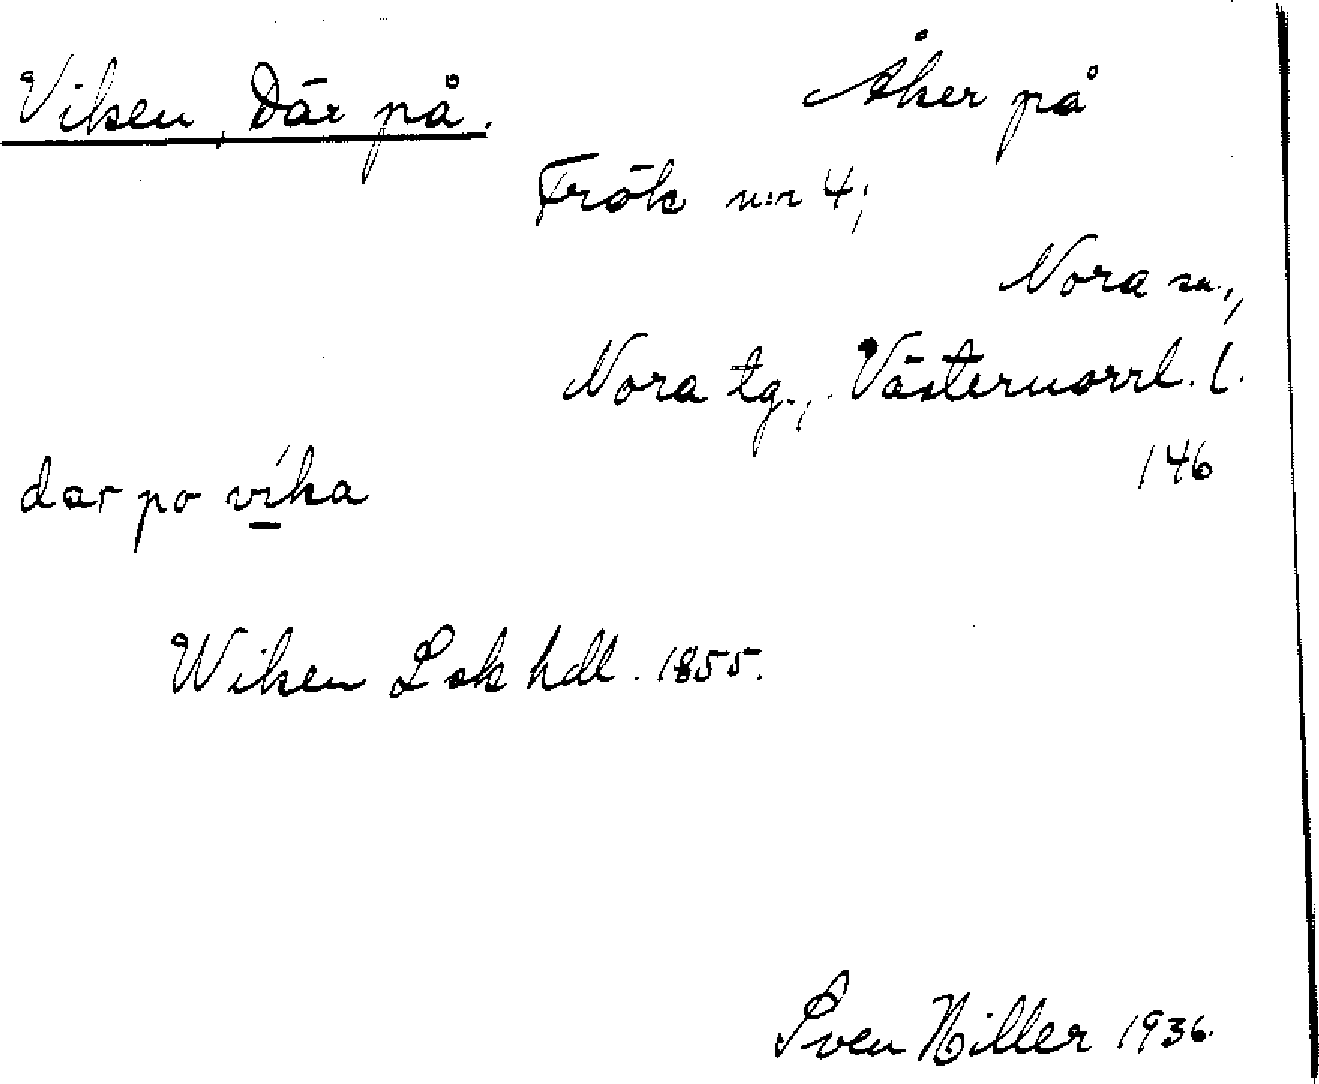 Viken, Där på.
Åker på
Frök n:r 4;
Nora sn.,
Nora tg., Västernorrl. l.
146
dar po vika
Wiken Lsk hdl. 1855.
Sven Hiller 1936.